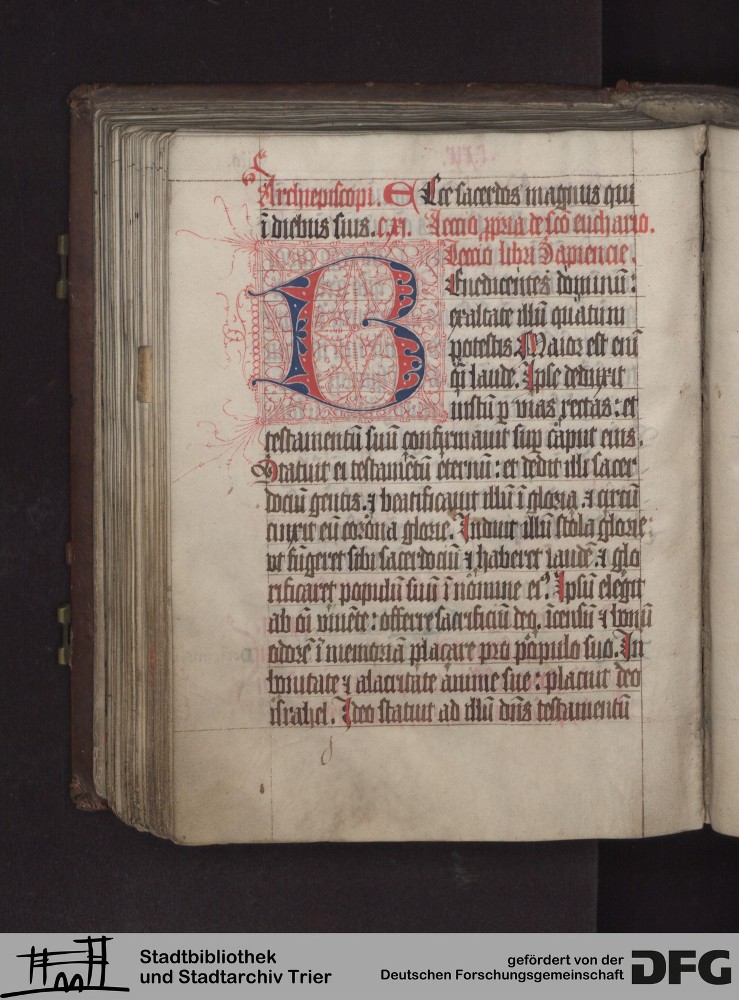 Archiepiscopi. Ecce sacerdos magnus qui
ī diebus suis. c.xi. Leccio ꝓpria de sc̄o euchario.
Leccio libri Sapiencie.
Benedicentes dominū:
exaltate illū quātum
potestis. Maior est enī
om̄i laude. Ipse deduxit
iustū ꝑ vias rectas: et
testamentū suū confirmauit suꝑ caput eius.
Statuit ei testamētū eternū: et dedit illi sacer
dociū gentis. ⁊ beatificauit illū ī gloria. ⁊ circū
cinxit eū corona glorie. Induit illū stola glorie
vt fūgeret sibi sacerdociū ⁊ haberet laudē. ⁊ glo
rificaret populū suū ī nomine eiꝰ. Ipsū elegit
ab oī viuēte: offerre sacrificiū deo. īcensū ⁊ bonū
odorē ī memoriā placare pro populo suo. In
bonitate ⁊ alacritate anime sue: placuit deo
israhel. Ideo statuit ad illū dn̄s testamentū
Stadtbibliothek
und Stadtarchiv Trier
gefördert von der
Deutschen Forschungsgemeinschaft
DFG